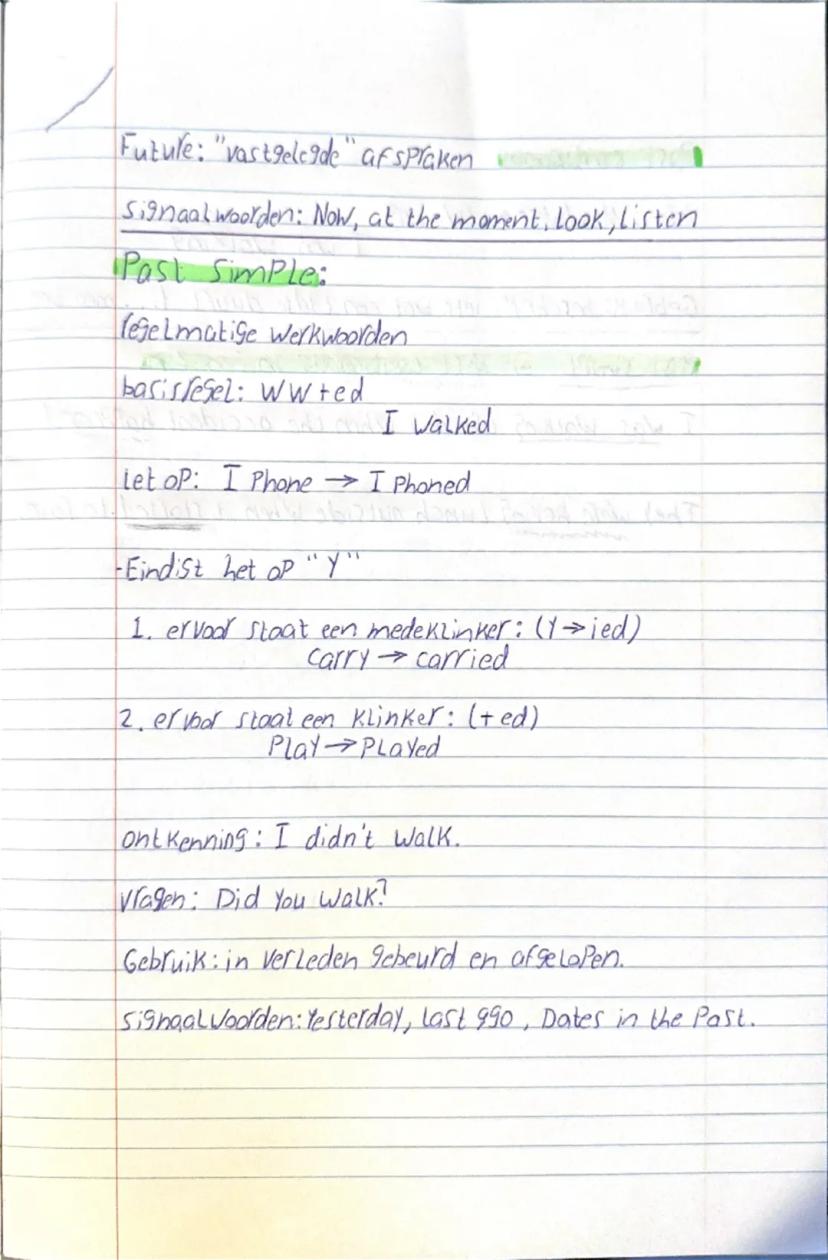 Future: "vastgelegde" afspraken
signaalwoorden: Now, at the moment, look, listen
Past simple:
regelmatige werkwoorden
basisregel: ww+ed
I walked
let op: I Phone → I Phoned
-Eindist het op "Y"
1. ervoor staat een medeklinker: (Y→ied)
Carry → carried
2. ervoor staat een klinker: (+ed)
Play → Played
ontkenning: I didn't walk.
Vragen: Did you walk?
Gebruik: in verleden gebeurd en afgelopen.
signaalwoorden: Yesterday, last ago, Dates in the Past.